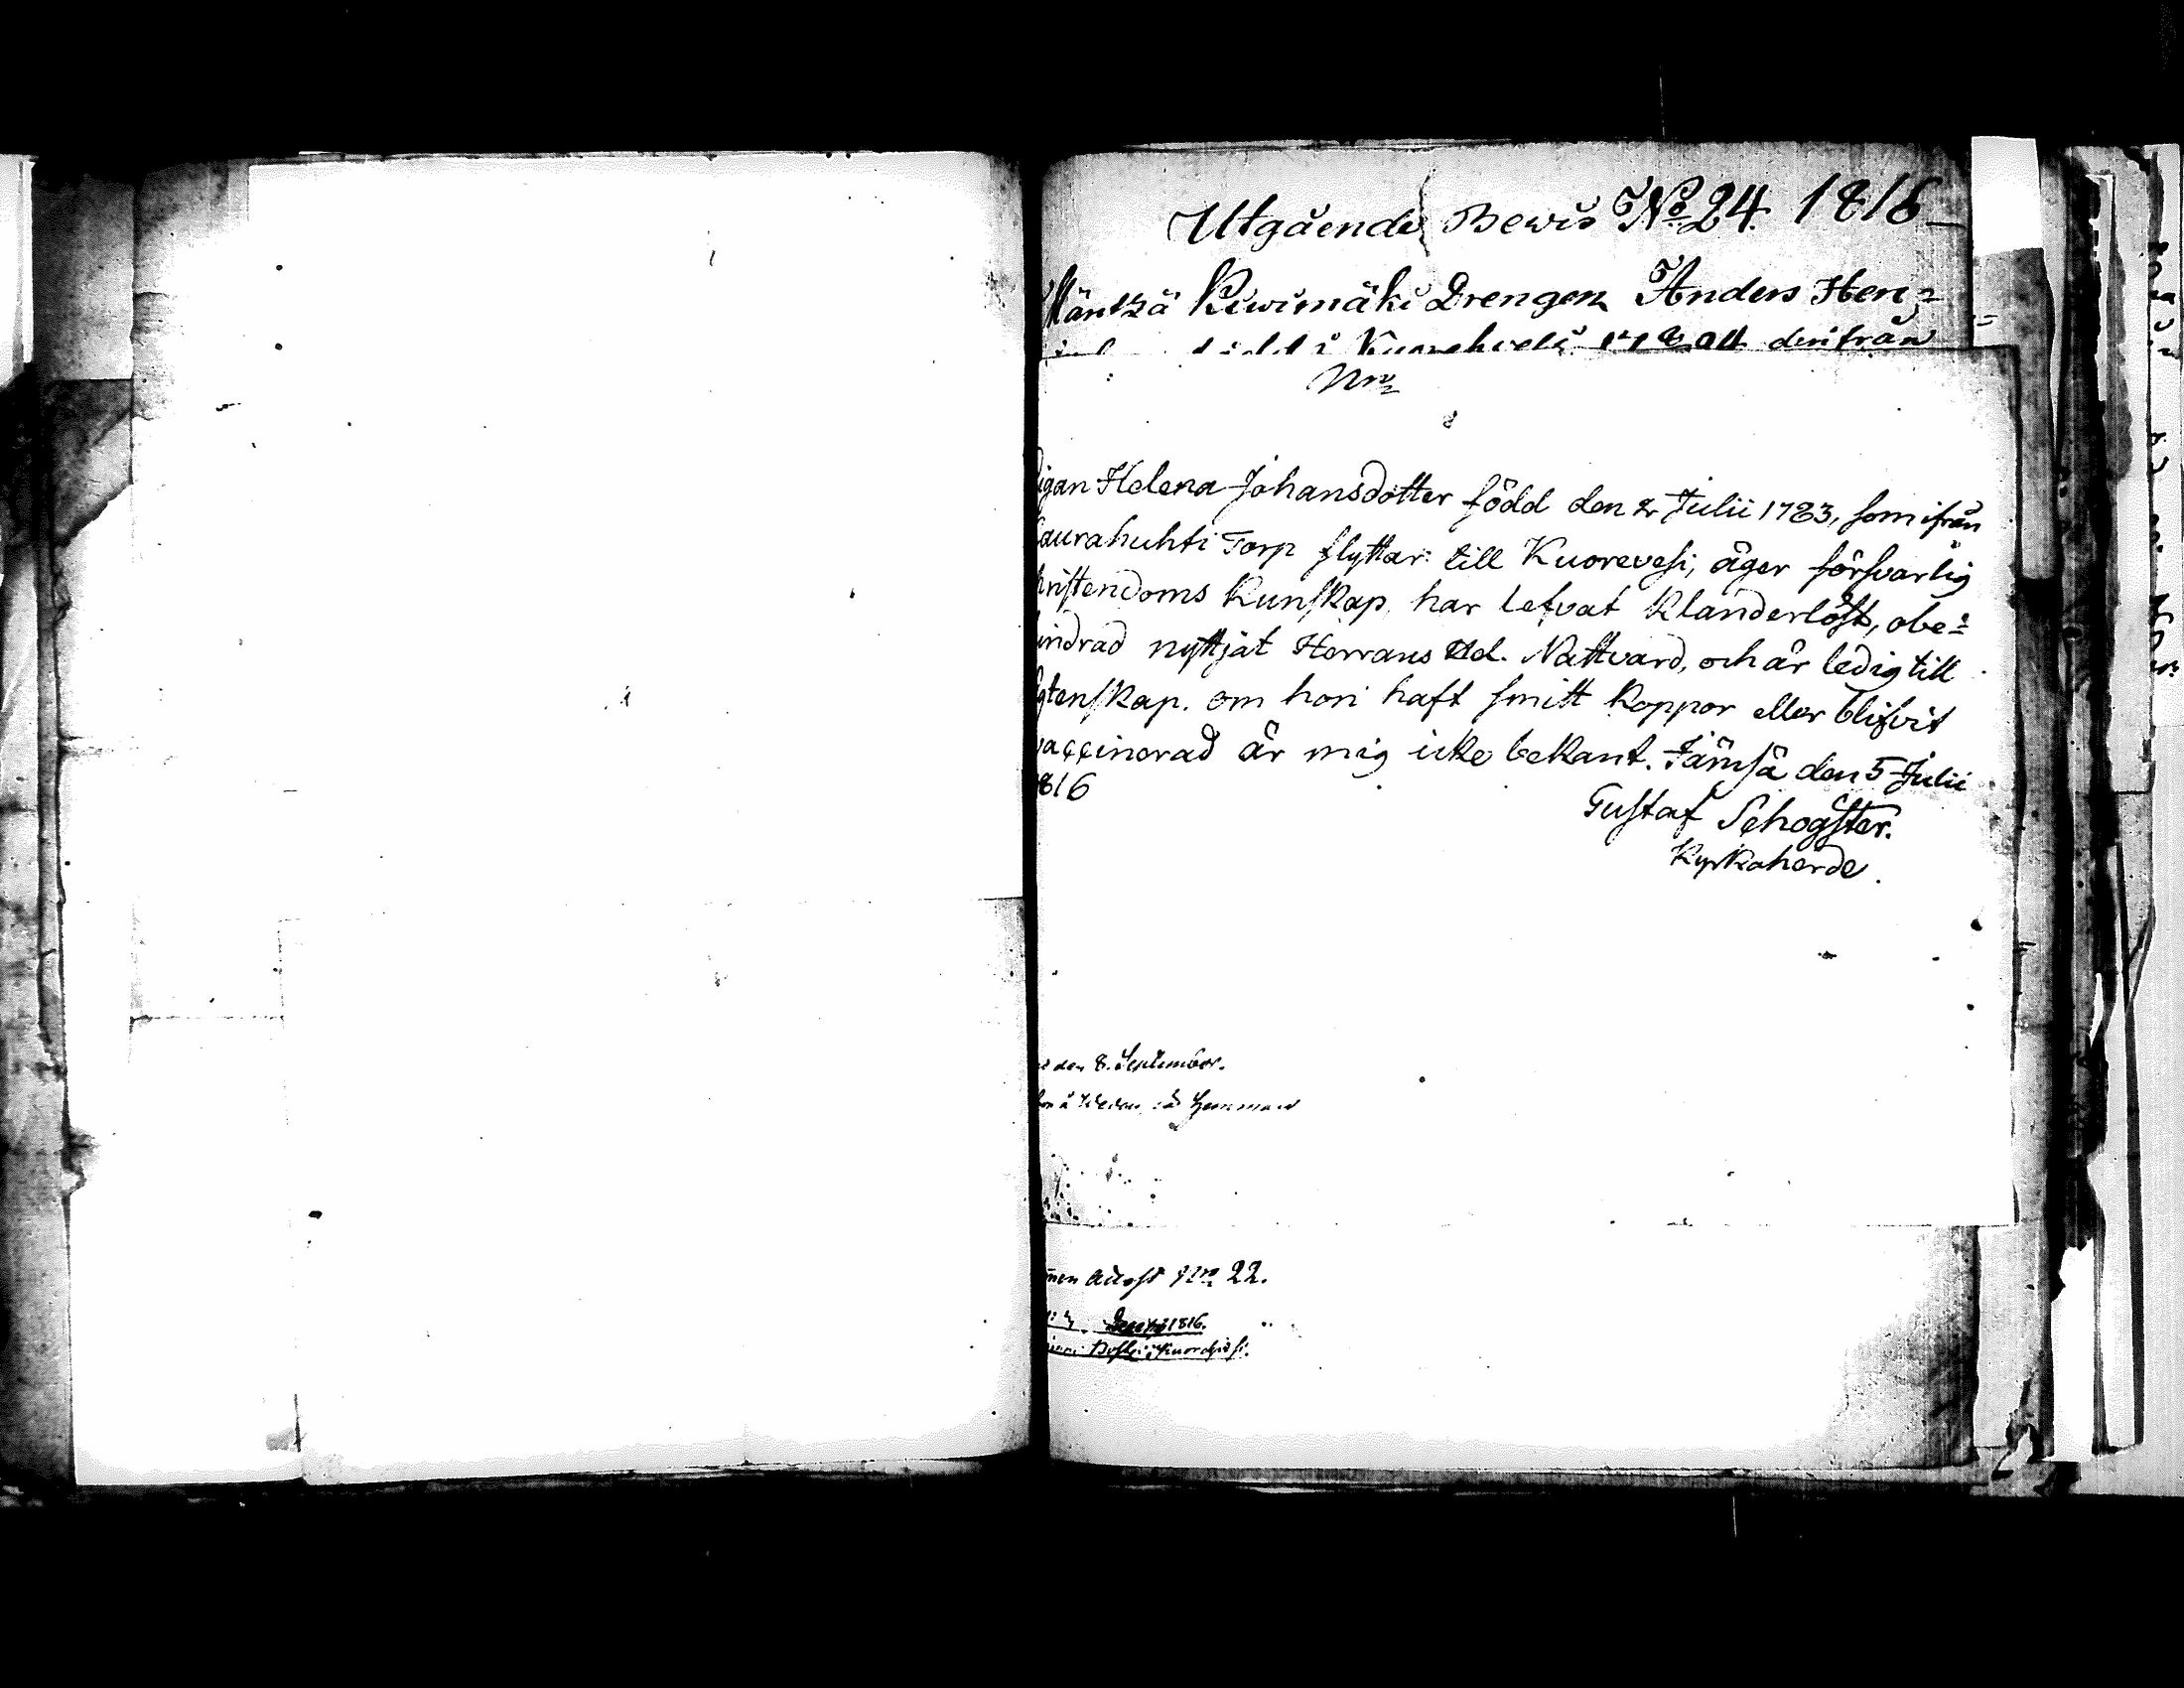 Utgående Bewis No 24. 1816
Mäntzä Kiwimäki Drengen Anders Hen=
Kuorehvesi denfrån
Nro
igan Helena Johansdotter född den 2 Julii 1783, som ifrån
aurahuhti Torp flyttar till Kuorevesi, äger försvarlig
hristendoms kunskap, har lefvat klanderlöst, obe=
indrad nyttjat Herrans Hel. Nattvard, och är ledig till
gtenskap. om hon haft smitt koppor eller blifvit
vaccinerad är mig icke bekant. Jämsä den 5 Julii
816
Gustaf Schogster.
Kyrkoherde.
den 8. September.
Hemman
Nro 22.
1816.